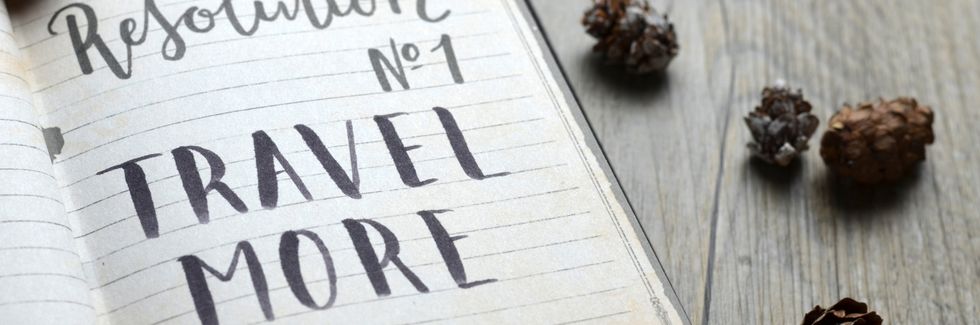 Resolution
Nº 1
TRAVEL
MORE